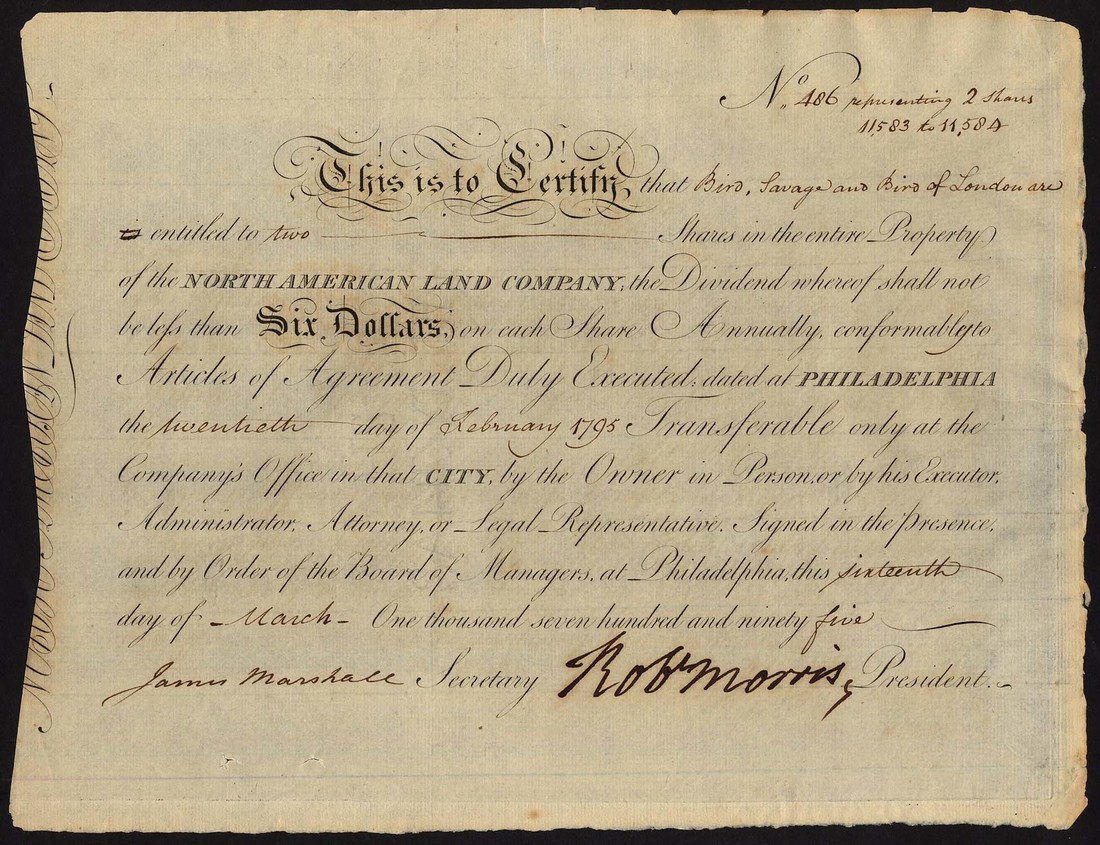 No. 486 representing 2 shares
11,583 to 11,584
This is to Certify, that Bird, Savage and Bird of London are
is entitled to two Shares in the entire Property
of the NORTH AMERICAN LAND COMPANY; the Dividend whereof shall not
be less than Six Dollars, on each Share Annually, conformably to
Articles of Agreement Duly Executed; dated at PHILADELPHIA
the twentieth day of February 1795 Transferable only at the
Company's Office in that CITY, by the Owner in Person, or by his Executor,
Administrator, Attorney, or Legal Representative. Signed in the presence,
and by Order of the Board of Managers, at Philadelphia, this sixteenth
day of March One thousand seven hundred and ninety five
James Marshall Secretary Robt Morris, President.